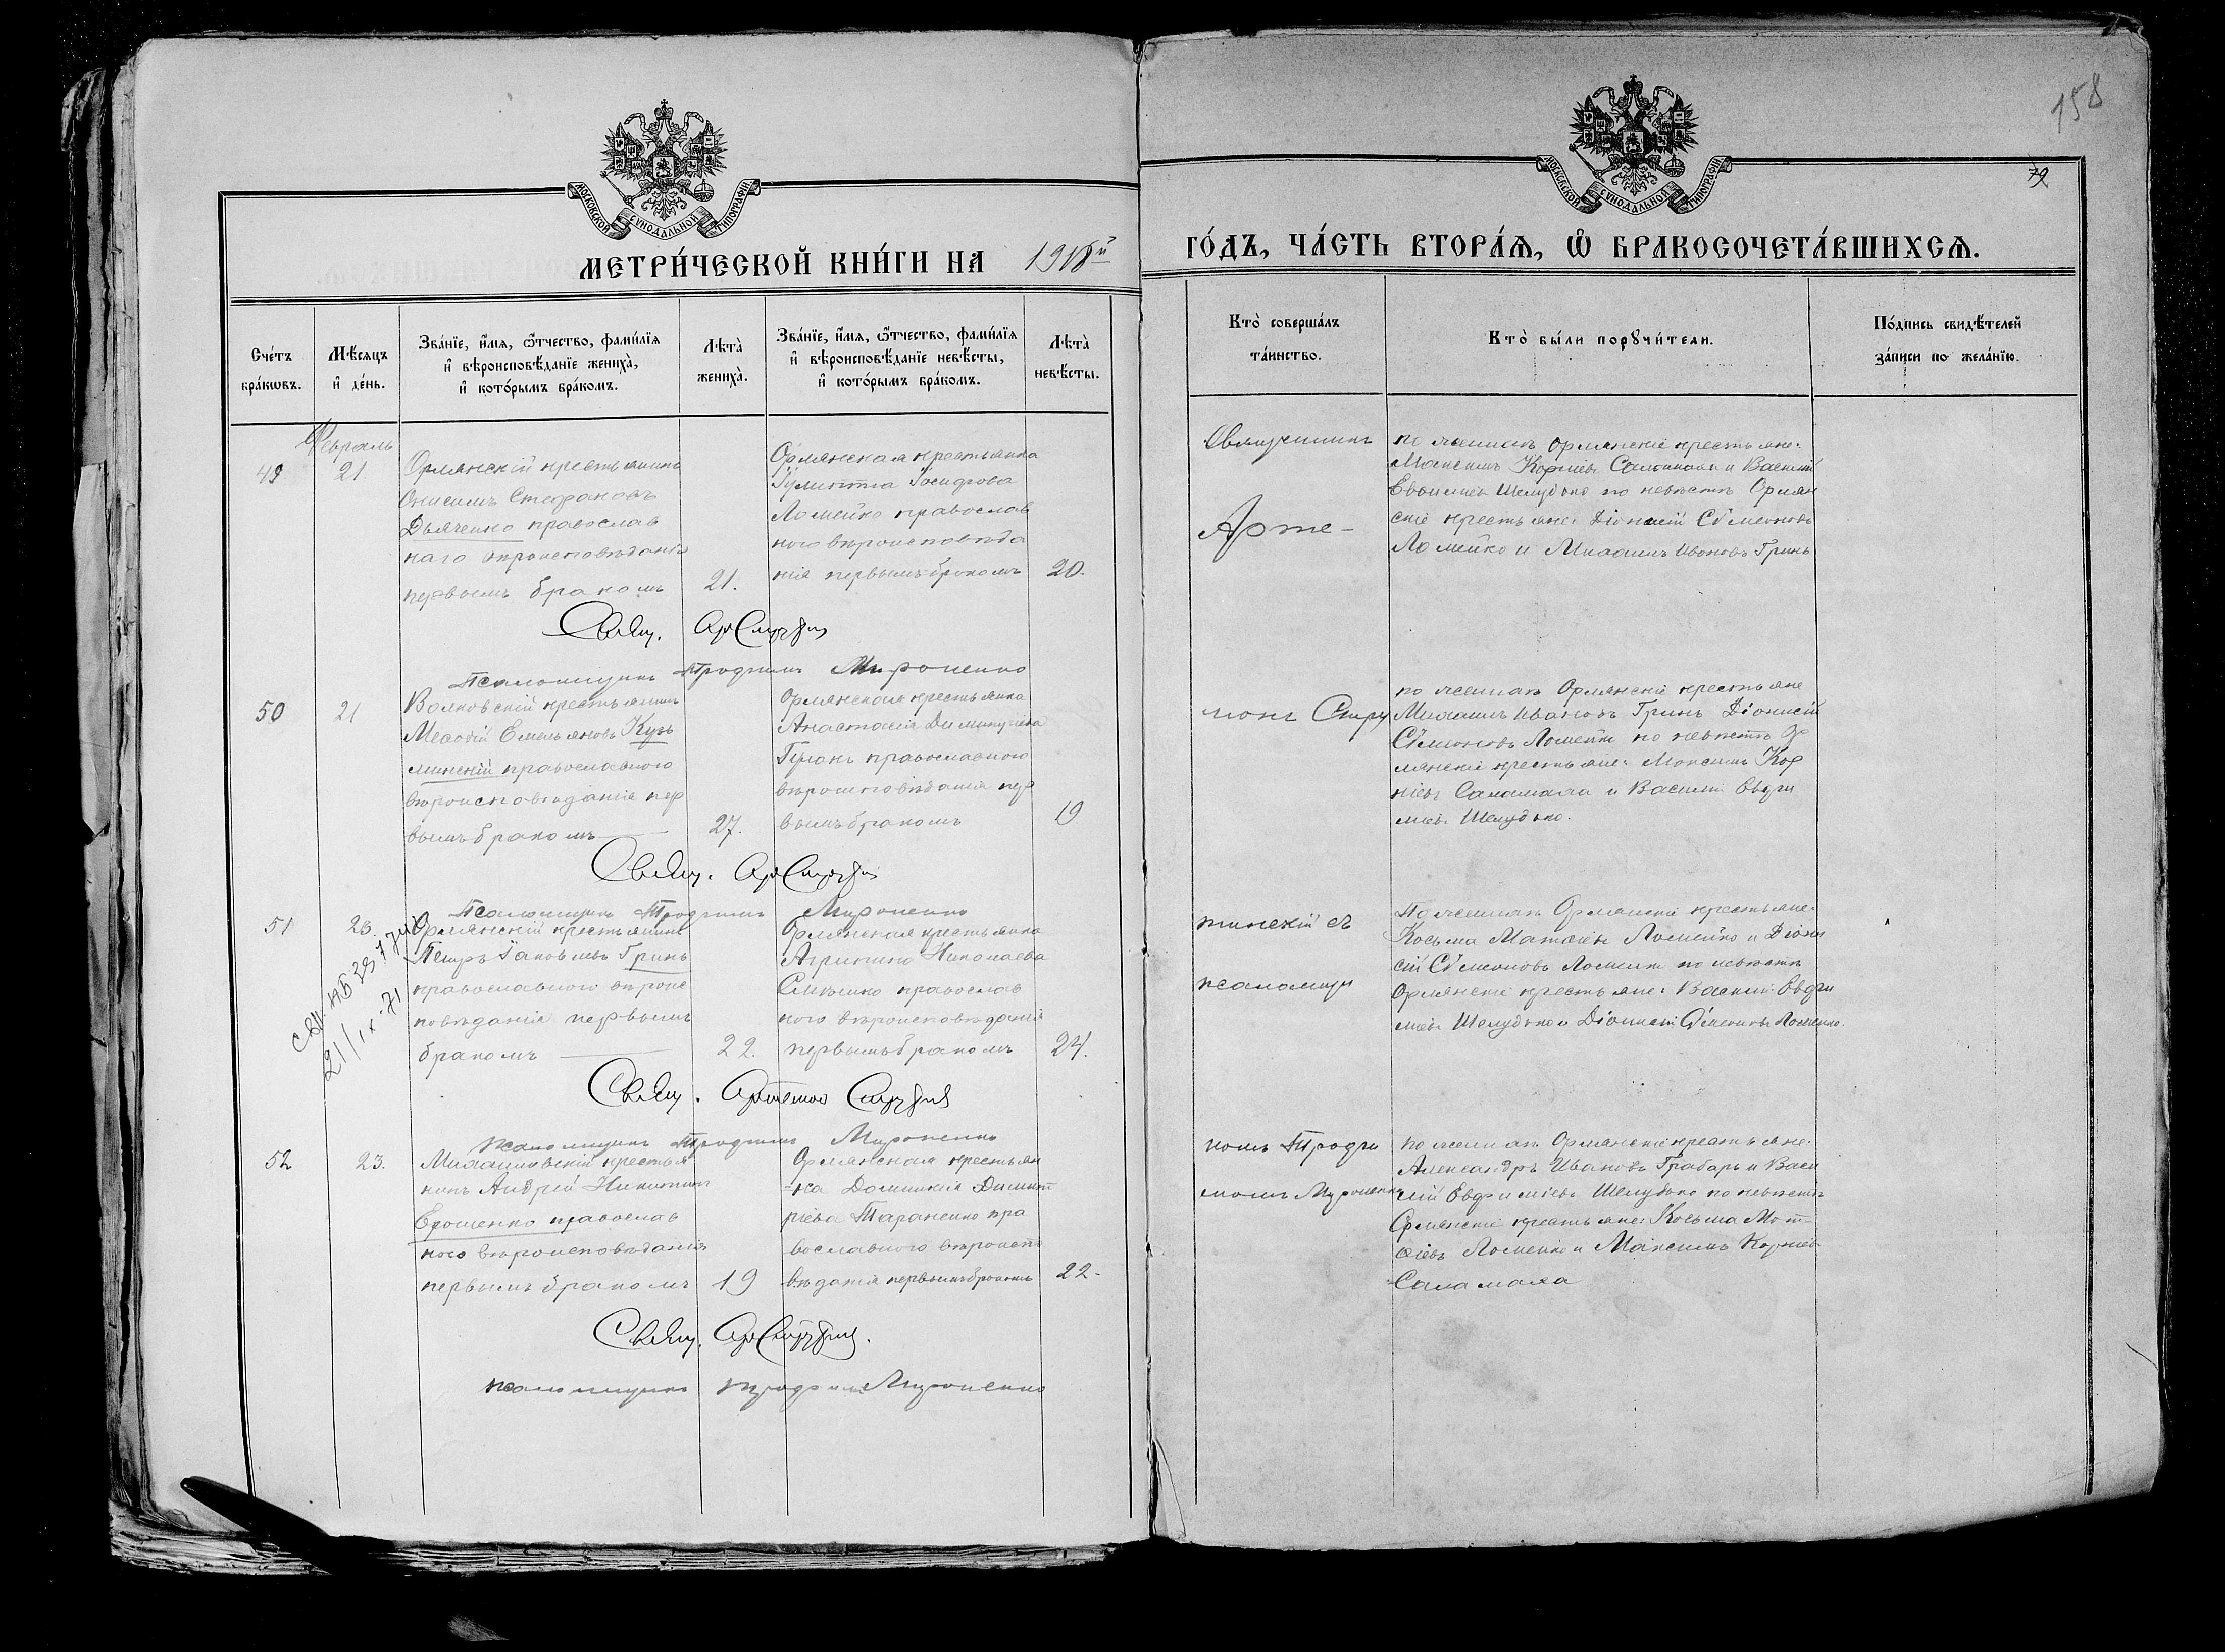 158
79
МОСКОВСКОЙ СѴНОДАЛЬНОЙ ТИПОГРАФІИ
МОСКОВСКОЙ СѴНОДАЛЬНОЙ ТИПОГРАФІИ
МЕТРИ́ЧЕСКОЙ КНИ́ГИ НА 1918й
ГО́ДЪ, ЧА́СТЬ ВТОРА́Я, Ѽ БРАКОСОЧЕТА́ВШИХСЯ.
Сче́тъ
бра́кωвъ.
Мѣ́сяцъ
и҆ де́нь.
Зва́нїе, и҆́мя, ѻ҆́тчество, фами́лїя
и҆ вѣроисповѣ́данїе жениха̀,
и҆ кото́рымъ бра́комъ.
Лѣта̀
жениха̀.
Зва́нїе, и҆́мя, ѻ҆́тчество, фами́лїя
и҆ вѣроисповѣ́данїе невѣ́сты,
и҆ кото́рымъ бра́комъ.
Лѣта̀
невѣ́сты.
Кто̀ соверша́лъ
та́инство.
Кто̀ бы́ли порꙋчи́тели.
По́дпись свидѣ́телей
за́писи по жела́нїю.
Февраль
49
21.
Орлянскій крестьянинъ
Онисимъ Стефановъ
Дьяченко православ
наго вѣроисповѣданія
первымъ бракомъ
21.
Орлянская крестьянка
Іулитта Іосифова
Ломейко православ
ного вѣроисповѣда
нія первымъ бракомъ
20.
Священникъ
Арте-
по женихѣ Орлянскіе крестьяне:
Максимъ Корніевъ Саламаха и Василій
Евфиміевъ Шелудько по невѣстѣ Орлян
скіе крестьяне: Діонисій Сѵмеоновъ
Ломейко и Михаилъ Ивановъ Гринь
Свящ.
Псаломщикъ Трофимъ Мироненко
50
21
крестьянинъ
Меѳодій Емельяновъ Кузь
минскій православного
вѣроисповѣданія пер
вымъ бракомъ
27.
Орлянская крестьянка
Анастасія
православного
вѣроисповѣданія пер
вымъ бракомъ
19
монъ
по женихѣ Орлянскіе крестьяне
Михаилъ Ивановъ Гринь Діонисій
Сѵмеоновъ Ломейко по невѣстѣ Ор
лянскіе крестьяне: Максимъ Кор
ніевъ Саламаха и Василій Евфи
міевъ Шелудько.
Свящ.
Псаломщикъ Трофимъ Мироненко
51
23.
21/IX-71
Орлянскій крестьянинъ
Петръ Іаковлевъ Гринь
православного вѣроис
повѣданія первымъ
бракомъ
22.
Орлянская крестьянка
Агрипина Николаева
православ
ного вѣроисповѣданія
первымъ бракомъ
24.
жинскій съ
псаломщи
По женихѣ Орлянскіе крестьяне:
Косьма Матѳіевъ Ломейко и Діони
сій Сѵмеоновъ Ломейко по невѣстѣ
Орлянскіе крестьяне: Василій Евфи
міевъ Шелудько и Діонисій Сѵмеоновъ Ломейко.
Свящ. Артемон
Псаломщикъ Трофимъ Мироненко
52
23.
Михайловскій крестья
нинъ Андрей Никитинъ
Ерошенко православ
ного вѣроисповѣданія
первымъ бракомъ
19
Орлянская крестьян
=ка Домникія Димит
ріева Тараненко пра
вославного вѣроиспо
вѣданія первымъ бракомъ
22.
комъ Трофи
момъ Мироненко
по женихѣ Орлянскіе крестьяне:
Александръ Ивановъ Грабарь и Васи
лій Евфиміевъ Шелудько по невѣстѣ
Орлянскіе крестьяне: Косьма Мат-
ѳіевъ Ломейко и Максимъ Корніевъ
Саламаха
Свящ.
Псаломщикъ Трофимъ Мироненко